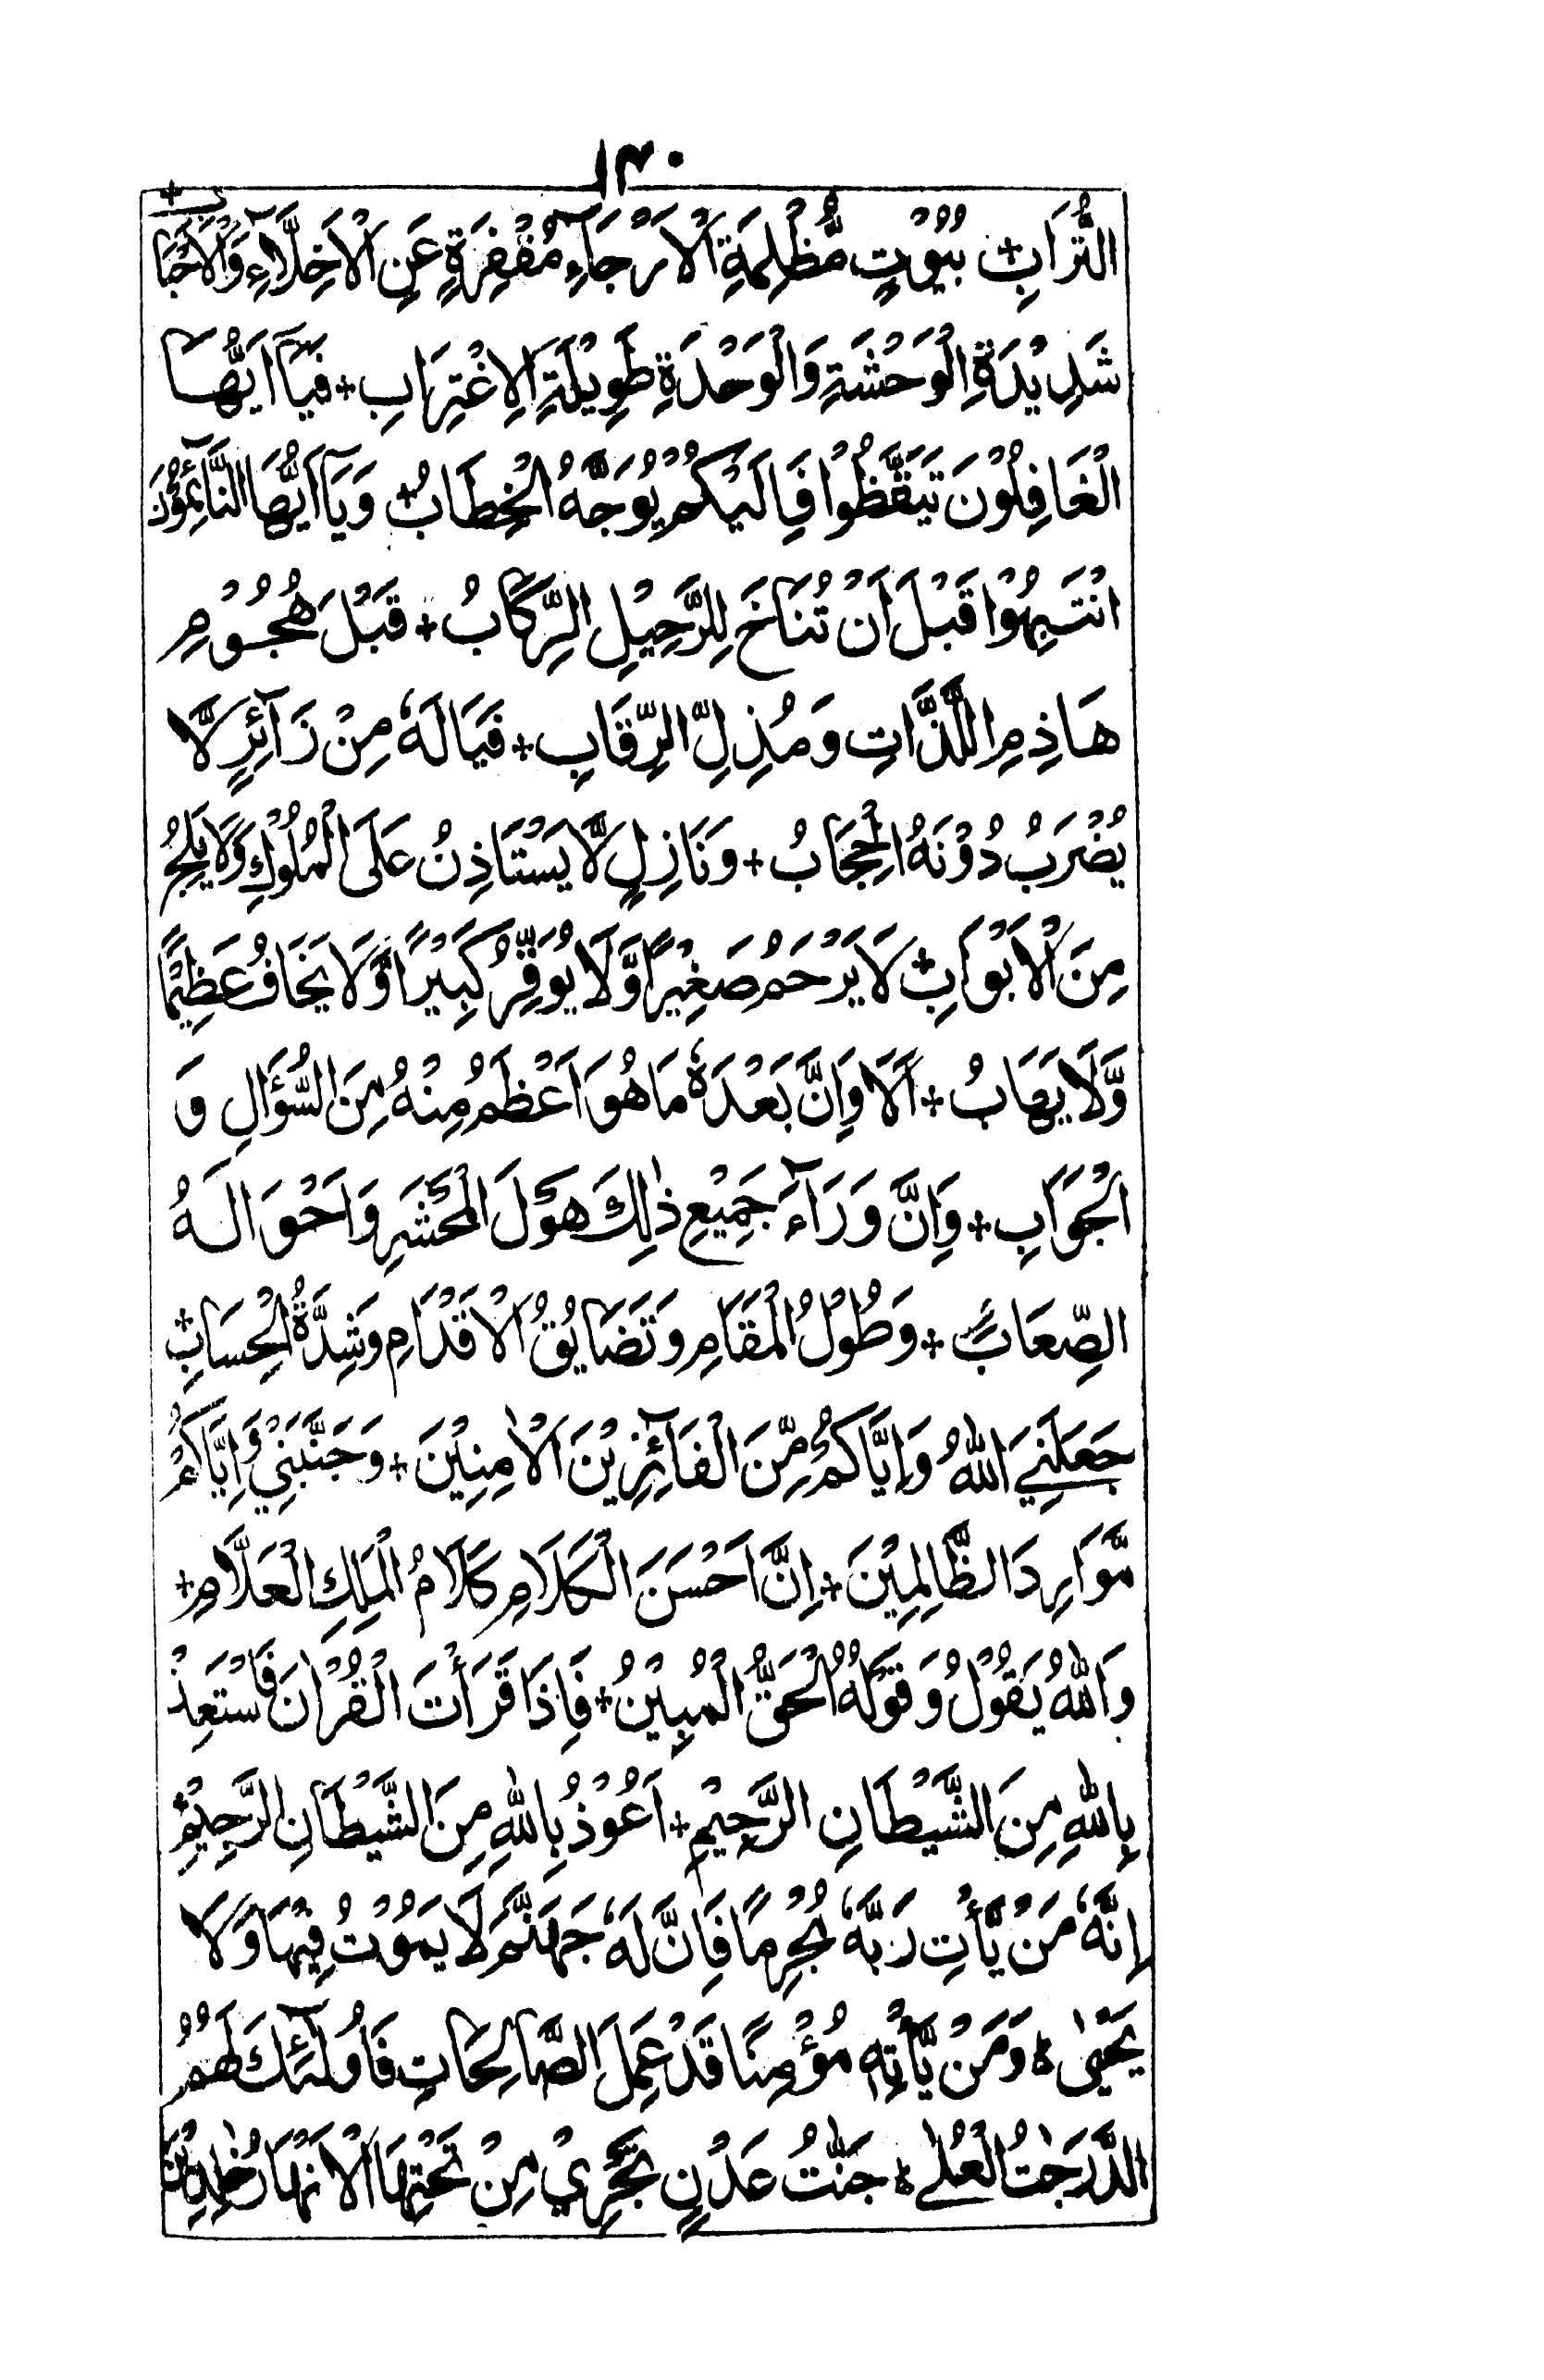 ١٣٠
التُّرَابِ + بُيُوْتٍ مُّظْلِمَةِ الْاَرْجَآءِ مُقْفِرَةٍ عَنِ الْاَخِلَّآءِ وَالْاَحْبَابِ +
شَدِيْدَةِ الْوَحْشَةِ وَالْوَحْدَةِ طَوِيْلَةِ الِاغْتِرَابِ + فَيَآ اَيُّهَا
الْغَافِلُوْنَ تَيَقَّظُوْا فَاِلَيْكُمْ يُوَجَّهُ الْخِطَابُ + وَيَآ اَيُّهَا النَّآئِمُوْنَ
انْتَبِهُوْا قَبْلَ اَنْ تُنَاخَ لِلرَّحِيْلِ الرِّكَابُ + قَبْلَ هُجُوْمِ
هَاذِمِ اللَّذَّاتِ وَمُذِلِّ الرِّقَابِ + فَيَالَهٗ مِنْ زَآئِرٍ لَّا
يُضْرَبُ دُوْنَهُ الْحِجَابُ + وَنَازِلٍ لَّا يَسْتَاذِنُ عَلَى الْمُلُوْكِ وَلَا يَلِجُ
مِنَ الْاَبْوَابِ + لَا يَرْحَمُ صَغِيْرًا وَّلَا يُوَقِّرُ كَبِيْرًا وَّلَا يَخَافُ عَظِيْمًا
وَّلَا يَهَابُ + اَلَا وَاِنَّ بَعْدَهٗ مَا هُوَ اَعْظَمُ مِنْهُ مِنَ السُّؤَالِ وَ
الْجَوَابِ + وَاِنَّ وَرَآءَ جَمِيْعِ ذٰلِكَ هَوْلَ الْمَحْشَرِ وَاَحْوَالَهُ
الصِّعَابَ + وَطُوْلُ الْمَقَامِ وَتَضَايُقُ الْاَقْدَامِ وَشِدَّةُ الْحِسَابِ +
جَعَلَنِيَ اللهُ وَاِيَّاكُمْ مِّنَ الْفَآئِزِيْنَ الْاٰمِنِيْنَ + وَجَنَّبَنِيْ وَاِيَّاكُمْ
مَّوَارِدَ الظَّالِمِيْنَ + اِنَّ اَحْسَنَ الْكَلَامِ كَلَامُ الْمَلِكِ الْعَلَّامِ +
وَاللهُ يَقُوْلُ وَقَوْلُهُ الْحَقُّ الْمُبِيْنُ + فَاِذَا قَرَأْتَ الْقُرْاٰنَ فَاسْتَعِذْ
بِاللهِ مِنَ الشَّيْطَانِ الرَّجِيْمِ + اَعُوْذُ بِاللهِ مِنَ الشَّيْطَانِ الرَّجِيْمِ +
اِنَّهٗ مَنْ يَّأْتِ رَبَّهٗ مُجْرِمًا فَاِنَّ لَهٗ جَهَنَّمَ لَا يَمُوْتُ فِيْهَا وَلَا
يَحْيٰى ه وَمَنْ يَّأْتِهٖ مُؤْمِنًا قَدْ عَمِلَ الصَّالِحَاتِ فَاُولٰٓئِكَ لَهُمُ
الدَّرَجٰتُ الْعُلٰى ه جَنّٰتُ عَدْنٍ تَجْرِيْ مِنْ تَحْتِهَا الْاَنْهَارُ خٰلِدِيْنَ